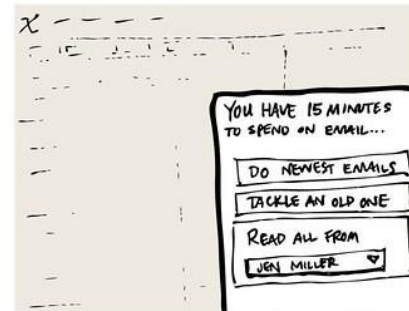 YOU HAVE 15 MINUTES
TO SPEND ON EMAIL...
DO NEWEST EMAILS
TACKLE AN OLD ONE
READ ALL FROM
JEN MILLER